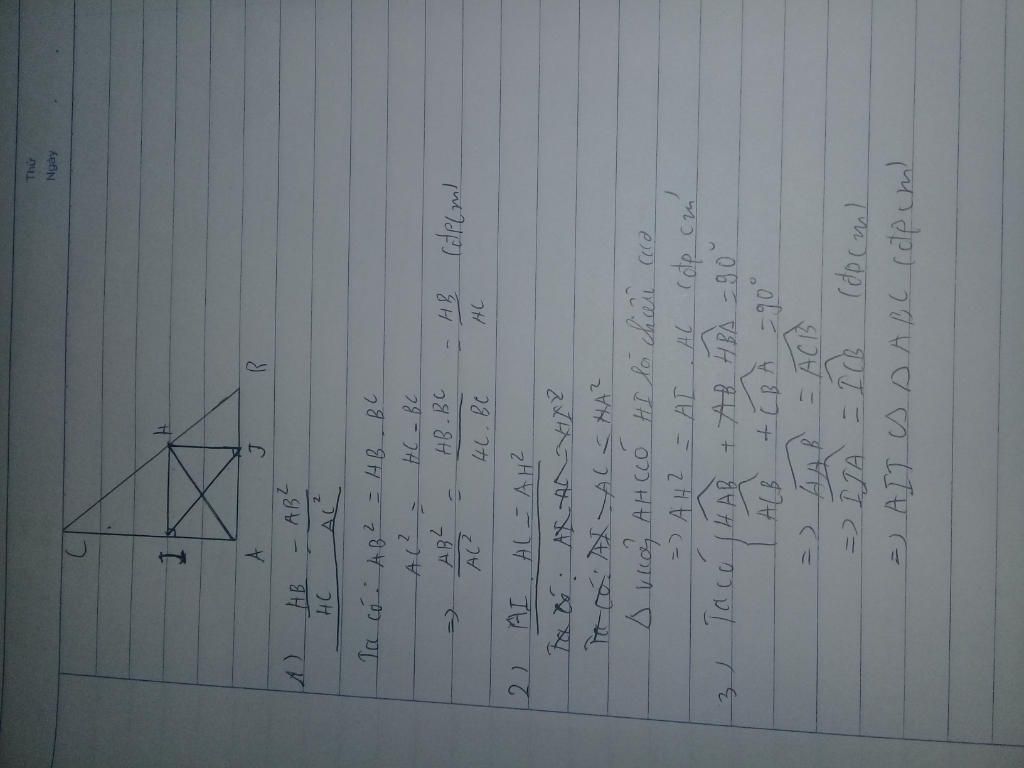 Thứ
Ngày
C
H
I
A
J
B
1) HB/HC = AB²/AC²
Ta có: AB² = HB.BC
AC² = HC-BC
=> AB²/AC² = HB.BC/HC.BC = HB/HC (đpcm)
2) AI.AC = AH²
Δ vuông AHC có HI là chiều cao
=> AH² = AI.AC (đpcm)
3) Ta có { HAB + HBA = 90°
ACB + CBA = 90°
=> HAB = ACB
=> IJA = ICB (đpcm)
=> AIJ ∽ Δ ABC (đpcm)